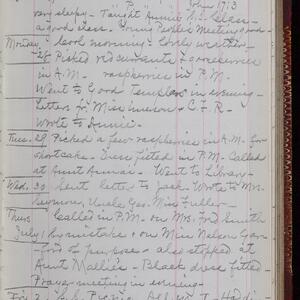 very sleepy. Taught Annie's class
a good class. Young People's Meeting good.
Monday Look morning. Lovely weather.
28 Picked red currants & gooseberries
in A.M. raspberries in P.M.
Went to Good Templars in evening
Letters for Miss & C.F.R.
Wrote to Annie.
Tues. 29 Picked a few raspberries in A.M. for
shortcake. Dress fitted in P.M. Called
at Aunt Annie's. Went to Library.
Wed. 30 Sent letter to Jack. Wrote to Mrs.
Seymour, Uncle Geo. Miss Fuller.
Thurs Called in P.M. on Mrs. Ford Smith
July 1 by mistake & on Miss Nelson
Ford to purpose - also stopped at
Aunt Mallie's - Black dress fitted.
Prayer meeting in evening.
Fri 2